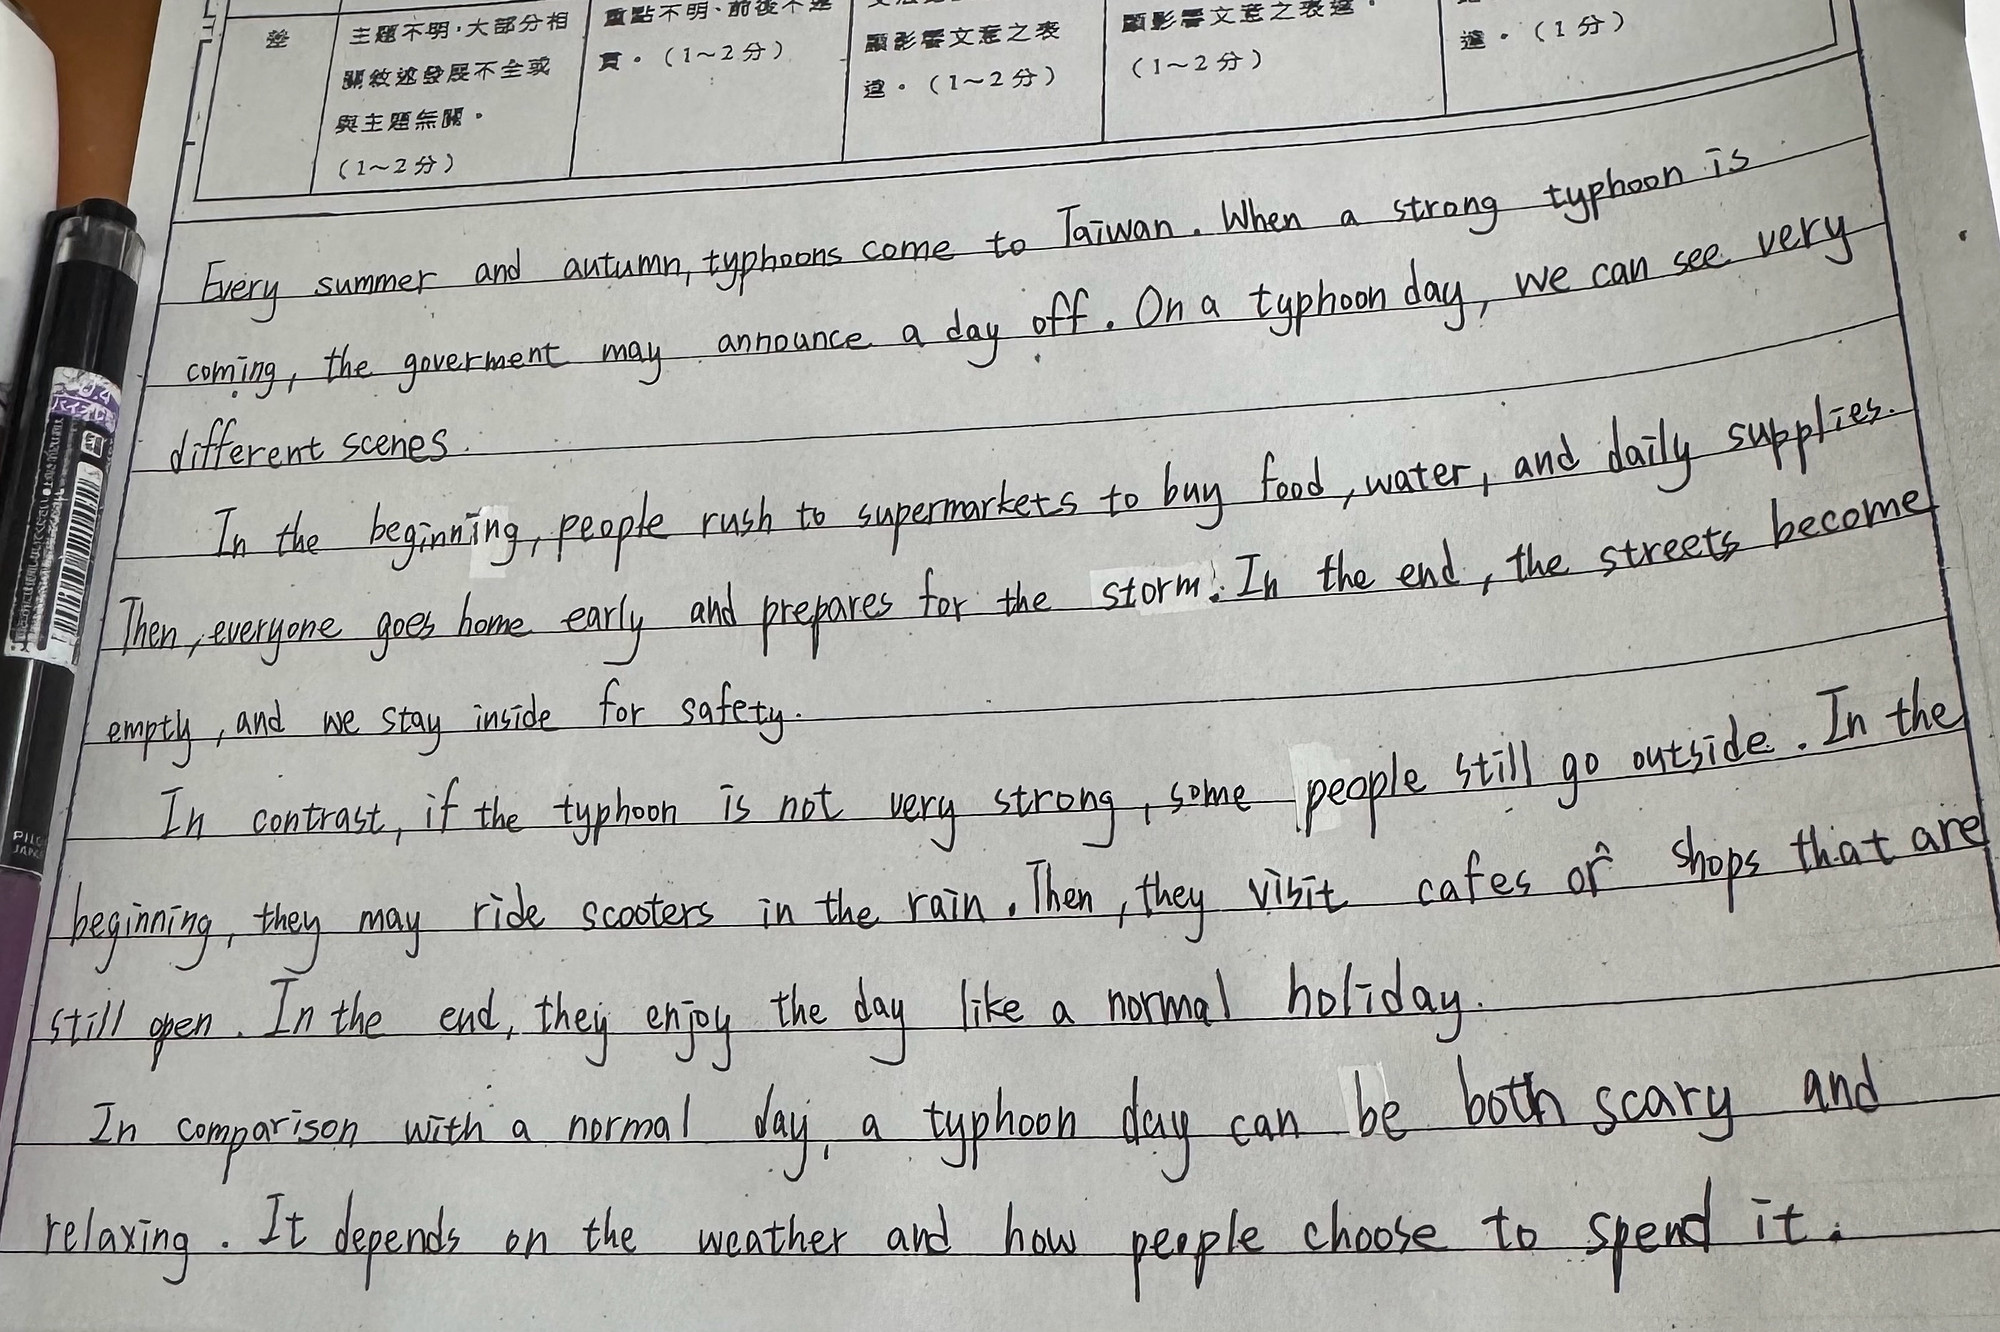 差
主題不明，大部分相
關敘述發展不全或
與主題無關。
（1～2分）
重點不明、前後不連
貫。（1～2分）
顯影響文意之表
達。（1～2分）
顯影響文意之表達。
（1～2分）
達。（1分）
Every summer and autumn, typhoons come to Taiwan. When a strong typhoon is
coming, the goverment may announce a day off. On a typhoon day, we can see very
different scenes.
In the beginning, people rush to supermarkets to buy food, water, and daily supplies.
Then, everyone goes home early and prepares for the storm. In the end, the streets become
empty, and we stay inside for safety.
In contrast, if the typhoon is not very strong, some people still go outside. In the
beginning, they may ride scooters in the rain. Then, they visit cafes or shops that are
still open. In the end, they enjoy the day like a normal holiday.
In comparison with a normal day, a typhoon day can be both scary and
relaxing. It depends on the weather and how people choose to spend it.
0.4
PILO
JAPA